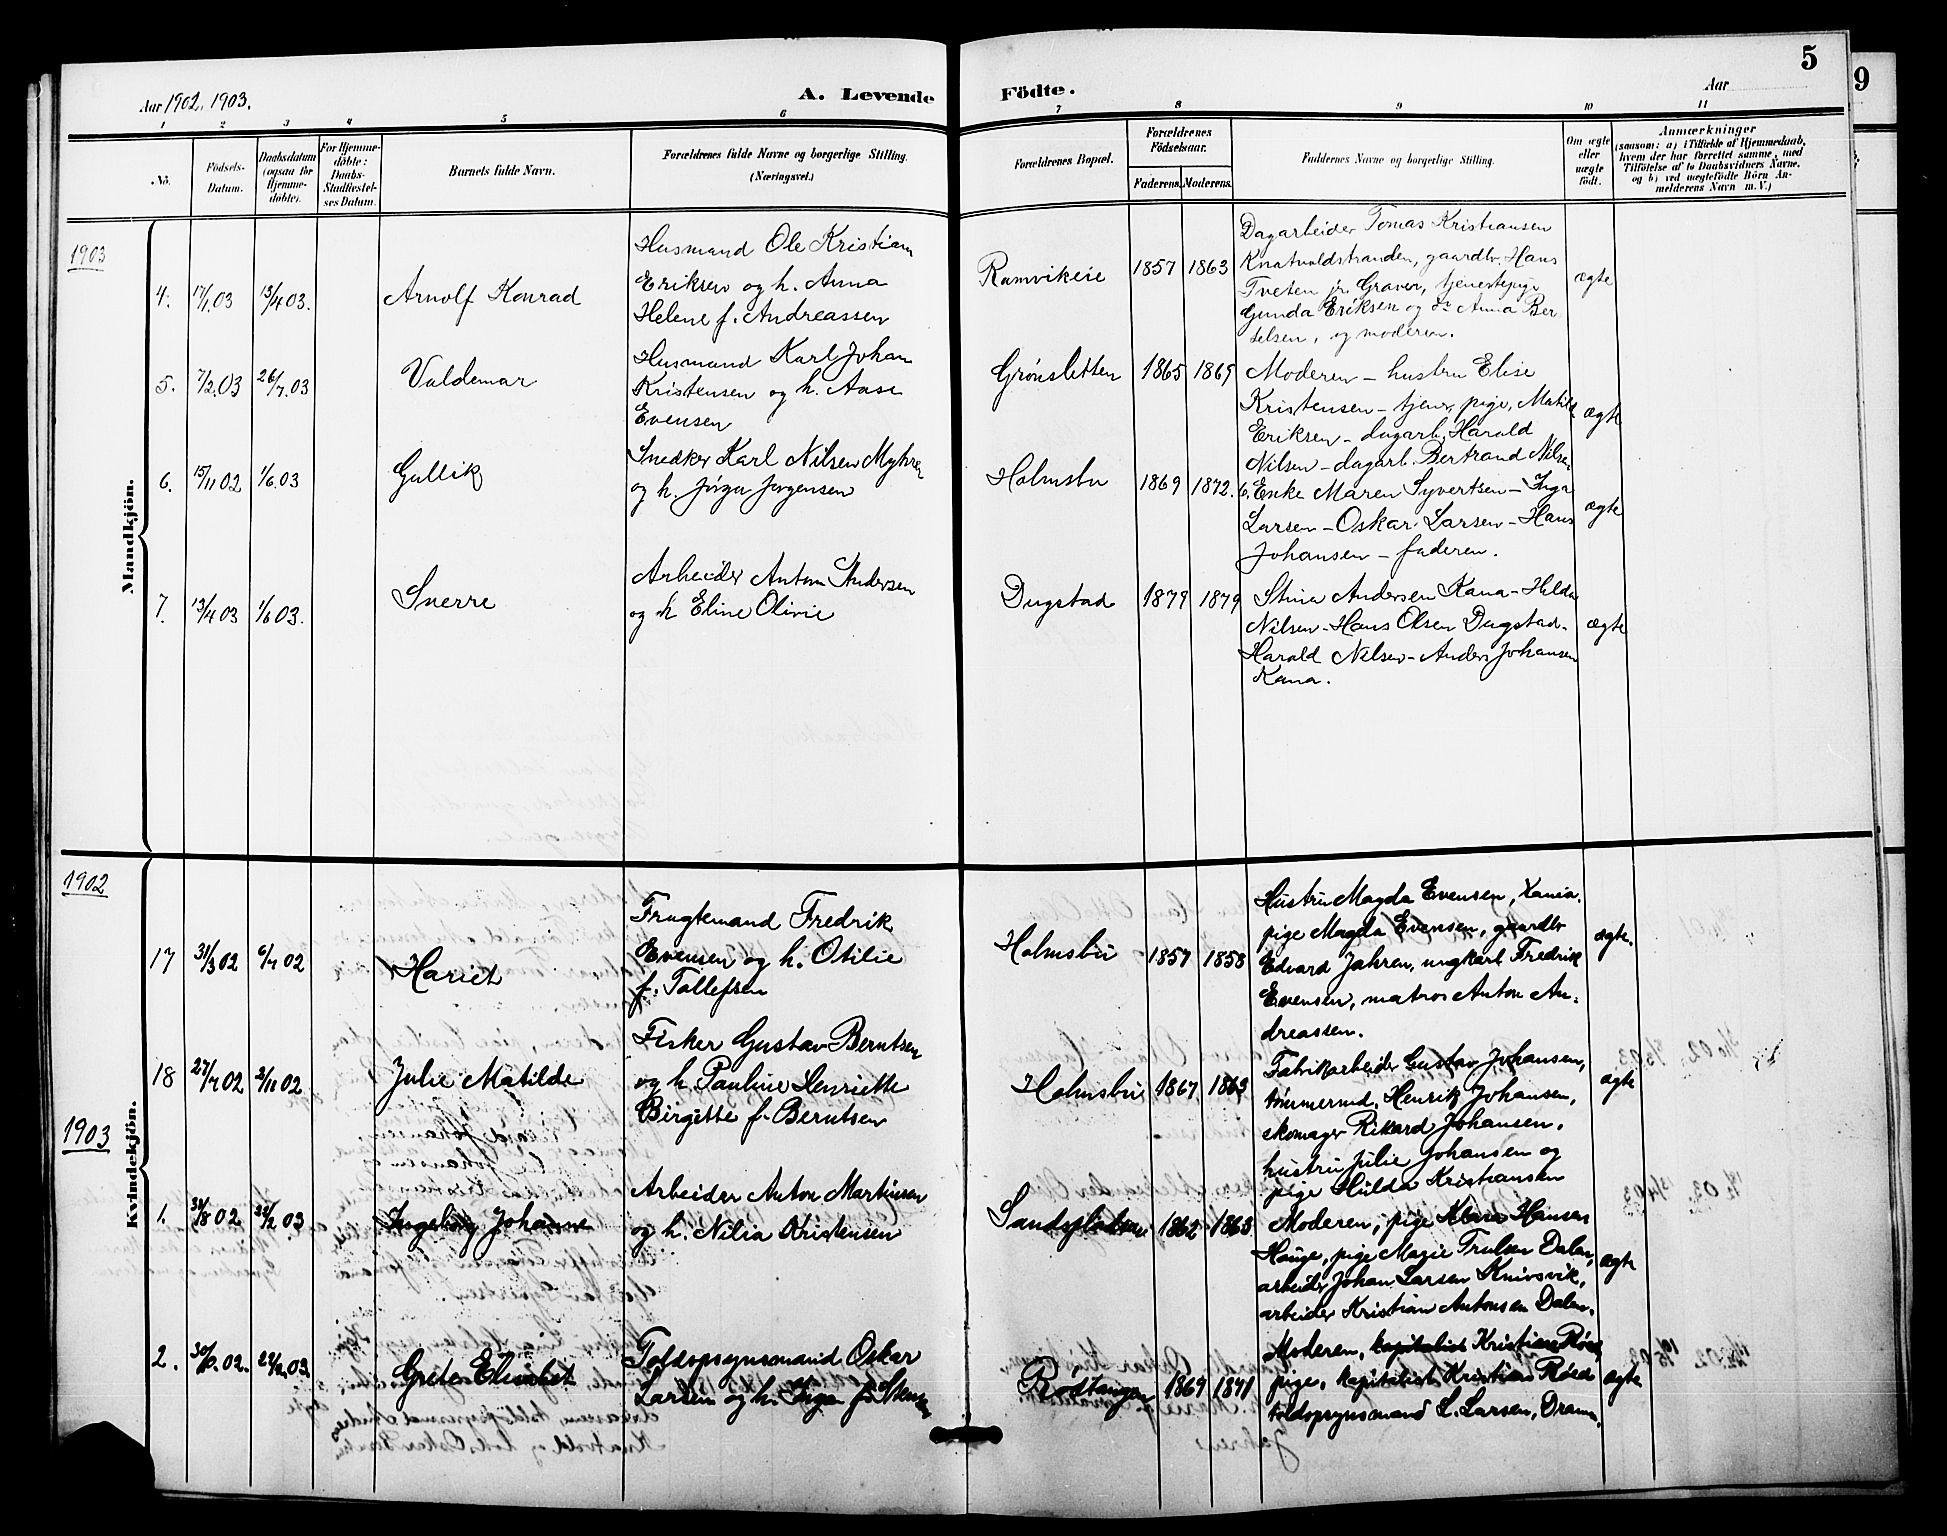 5
9
Aar 1902, 1903.
A. Levende
Födte.
Aar
1 2 3 4 5 6 7 8 9 10 11
No.
Födsels-
Datum.
Daabsdatum
(ogsaa for
Hjemme-
döbte).
For Hjemme-
döbte:
Daabs-
Stadfæstel-
ses Datum.
Barnets fulde Navn.
Forældrenes fulde Navne og borgerlige Stilling.
(Næringsvei.)
Forældrenes Bopæl.
Forældrenes
Födselsaar.
Faderens. Moderens.
Faddernes Navne og borgerlige Stilling.
Om ægte
eller
uægte
født.
Anmærkninger
(saasom: a) i Tilfælde af Hjemmedaab,
hvem der har forrettet samme, med
Tilföielse af to Daabsvidners Navne,
og b) ved uægtefödte Börn An-
melderens Navn m. V.)
1903
Mandkjön.
4. 17/1 03 13/4 03.
Arnolf Konrad
Husmand Ole Kristian
Eriksen og h. Anna
Helene f. Andreassen
Ramvikeie
1857 1863
Dagarbeider Tomas Kristiansen
Knatvoldstranden, gaardbr. Hans
Tveten jr. Graver, tjenestepige
Gunda Eriksen og do Anna Ber
telsen, og moderen.
ægte
5. 7/2 03 26/7 03
Valdemar
Husmand Karl Johan
Kristensen og h. Aase
Evensen
Grönsletten
1865 1869
Moderen – hustru Elise
Kristensen – tjen. pige, Matilde
Eriksen – dagarb. Harald
Nilsen – dagarb. Bertrand Nilsen
ægte
6. 15/11 02 1/6 03
Gullik
Snedker Karl Nilsen Myhre
og h. Jörga Jörgensen
Holmsbu
1869 1872.
6. Enke Maren Syvertsen – Inga
Larsen – Oskar Larsen – Hans
Johansen – faderen.
ægte
7. 13/4 03 1/6 03.
Sverre
Arbeider Anton Andersen
og h Eline Olivie
Dugstad
1879 1879
Stina Andersen Kana – Hilda
Nilsen – Hans Olsen Dugstad –
Harald Nilsen – Anders Johansen
Kana.
ægte
1902
Kvindekjön.
17 31/3 02 6/7 02
Hariet
Frugtemand Fredrik
Evensen og h. Otilie
f. Tollefsen
Holmsbu
1857 1858
Hustru Magda Evensen, Xania.
pige Magda Evensen, gaardbr
Edvard Jahren, ungkarl Fredrik
Evensen, matros Anton An-
dreassen.
ægte.
18 27/7 02 2/11 02
Julie Matilde
Fisker Gustav Berntsen
og h. Pauline Henriette
Birgitte f. Berntsen
Holmsbu
1867 1863
Fabrikarbeider Gustav Johansen,
tömmermd. Henrik Johansen,
skomager Rikard Johansen.
hustru Julie Johansen og
pige Hulda Kristiansen
ægte
1903
1. 8 02 22/2 03
Ingeborg Johanne
Arbeider Anton Martinsen
og h. Nilia Kristensen
Sandsplads
1862 1863
Moderen, pige Klara Hansen
Hauge, pige Magie Trulsen Dalen,
arbeider Johan Larsen Knivsvik,
arbeider Kristian Antonsen Dalen.
ægte
2. 02. 22/2 03
Grete Elisabet
Toldopsynsmand Oskar
Larsen og h. Inga f. Steen
Rödtangen
1869 1871
Moderen, kapitalist Kristian Röed,
pige, kapitalist Kristian Röed
toldopsynsmand L. Larsen, Dramn.
ægte